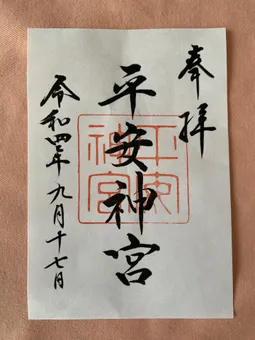 奉拝
平安神宮
令和四年九月十七日
平安神宮